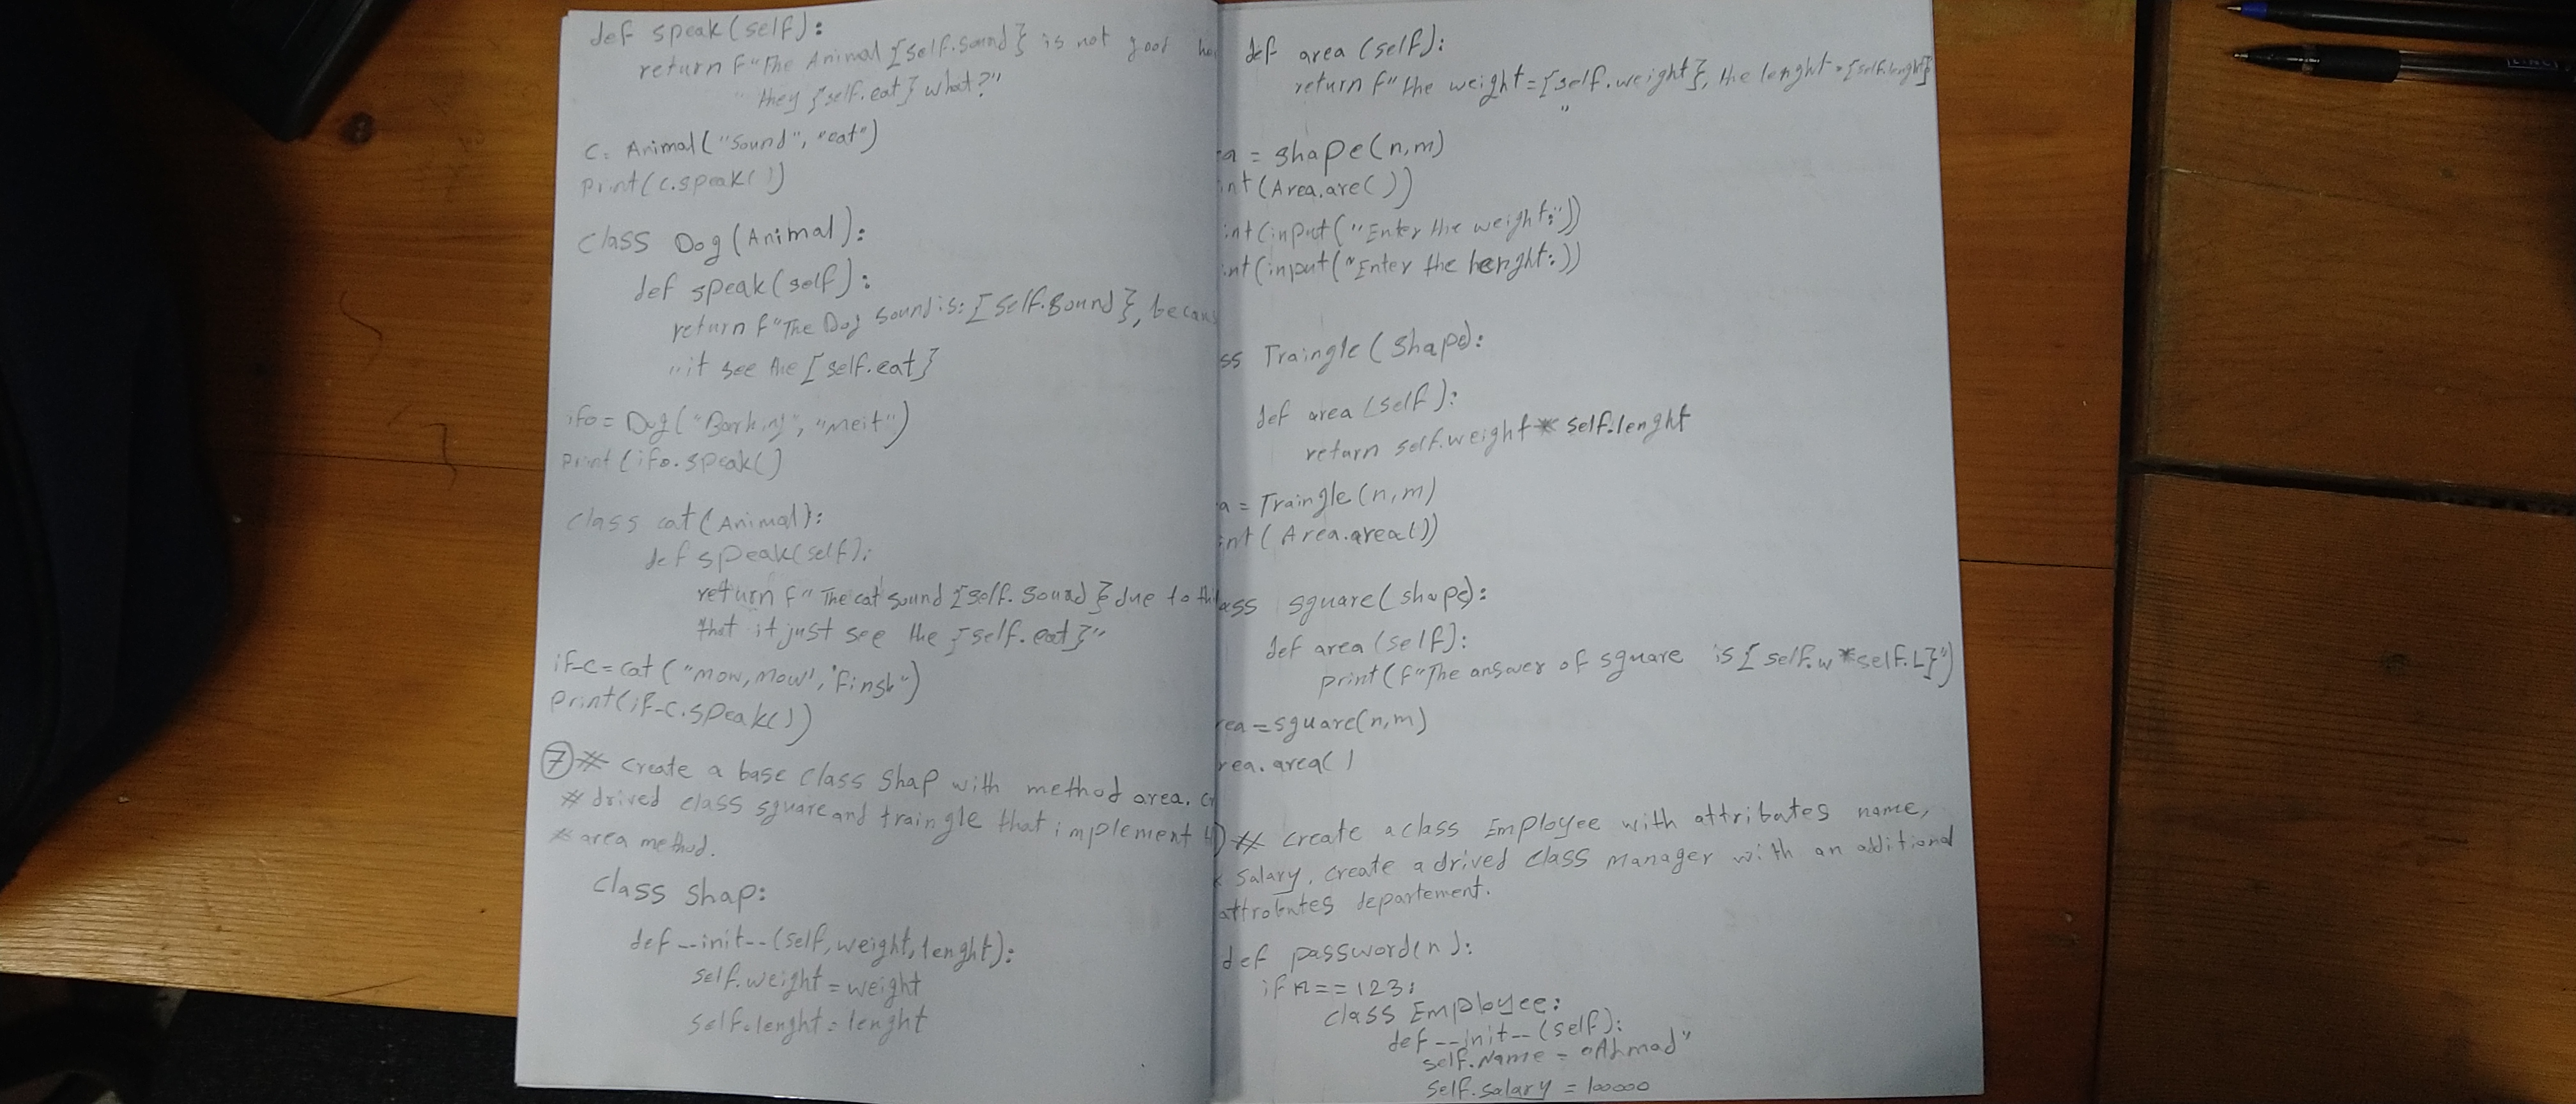 def speak(self):
return f"The Animal {self.sound} is not good
"they {self.eat} what?"
C = Animal("Sound", "eat")
print(c.speak())
class Dog(Animal):
def speak(self):
return f"The Dog Sound is: {self.sound}, becaus
"it see the {self.eat}
ifo = Dog("Barking", "meit")
print(ifo.speak()
class cat(Animal):
def speak(self):
return f"The cat sound {self.sound} due to
"that it just see the {self.eat}"
if-c = cat("mow, mow",
print(if-c.speak())
7 # create a base class Shap with method area. cr
# drived class square and traingle that implement
# area method.
class Shap:
def --init--(self, weight, lenght):
self.weight = weight
self.lenght = lenght
def area(self):
return f"the weight = {self.weight}, the lenght = {self.lenght}
a = shape(n,m)
int(Area.are())
int(input("Enter the weight:"))
int(input("Enter the lenght:))
ss Traingle(Shape):
def area(self):
return self.weight * self.lenght
a = Traingle(n,m)
int(Area.area())
ass square(shape):
def area(self):
print(f"The answer of square is {self.w * self.L}")
rea = square(n,m)
rea.area()
# create a class Employee with attributes name,
salary, create a drived class manager with an additional
attrobutes departement.
def password(n):
if n == 123:
class Employee:
def --init--(self):
self.name = "Ahmad"
self.salary = 100000